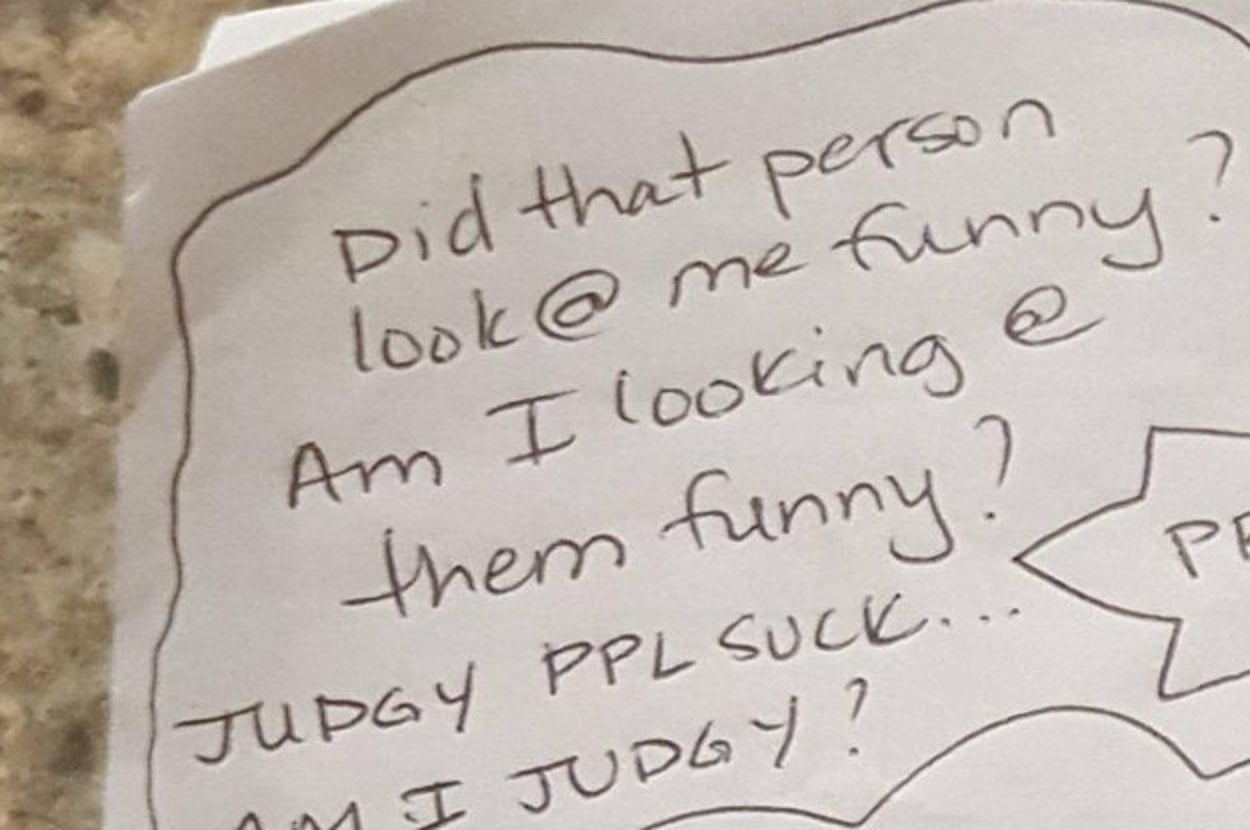 Did that person
look @ me funny?
Am I looking @
them funny?
JUDGY PPL SUCK...
AM I JUDGY?